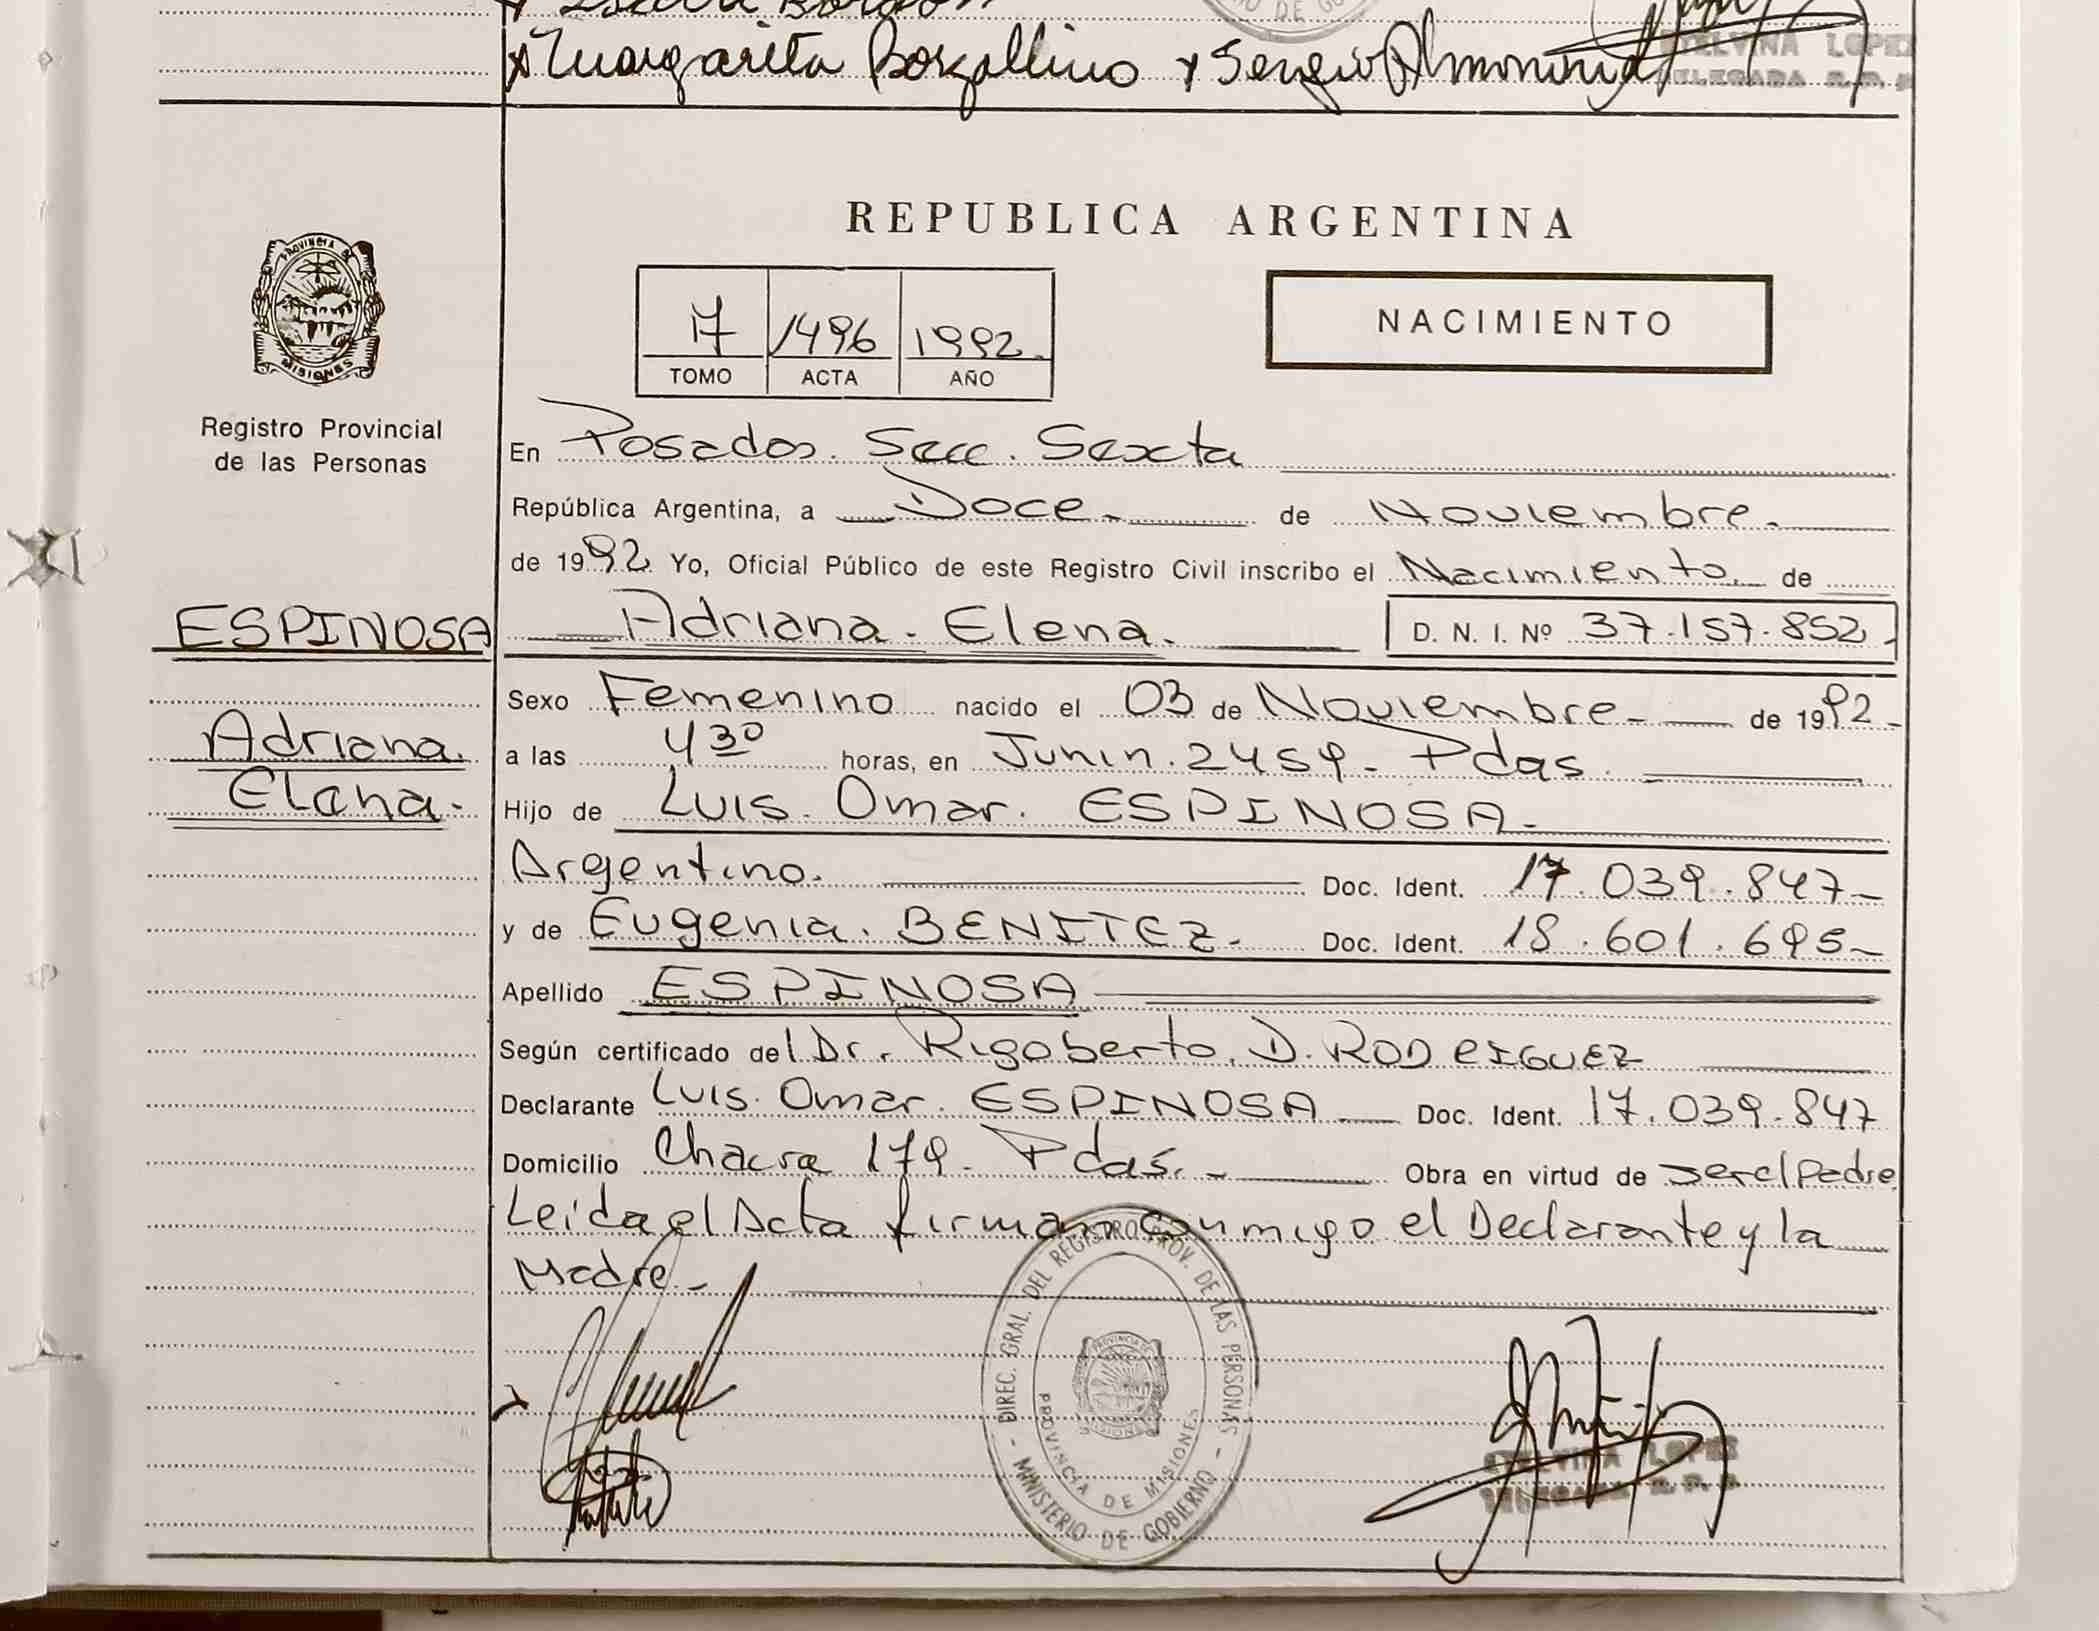 Margarita Borgallino x Sergio Almoni
ETELVINA LOPEZ
DELEGADA R.P.P
REPUBLICA ARGENTINA
PROVINCIA DE MISIONES
17 1496 1992
TOMO ACTA AÑO
NACIMIENTO
Registro Provincial
de las Personas
En Posadas. Secc. Sexta
República Argentina, a Doce de Noviembre
de 1992 Yo, Oficial Público de este Registro Civil inscribo el Nacimiento de
ESPINOSA Adriana. Elena. D. N. I. Nº 37.157.852
Sexo Femenino nacido el 03 de Noviembre de 1992
Adriana a las 4 30 horas, en Junin. 2459 Pdas.
Elena Hijo de Luis. Omar. ESPINOSA
Argentino. Doc. Ident. 17.039.847
y de Eugenia. BENITEZ Doc. Ident. 18.601.695
Apellido ESPINOSA
Según certificado del Dr. Rigoberto. D. RODRIGUEZ
Declarante Luis. Omar. ESPINOSA Doc. Ident. 17.039.847
Domicilio Chacra 179. Pdas. Obra en virtud de ser el Padre
Leida el Acta firman conmigo el Declarante y la
Madre
DIREC. GRAL. DEL REGISTRO PROV. DE LAS PERSONAS - MINISTERIO DE GOBIERNO -
PROVINCIA DE MISIONES
ETELVINA LOPEZ
DELEGADA R.P.P